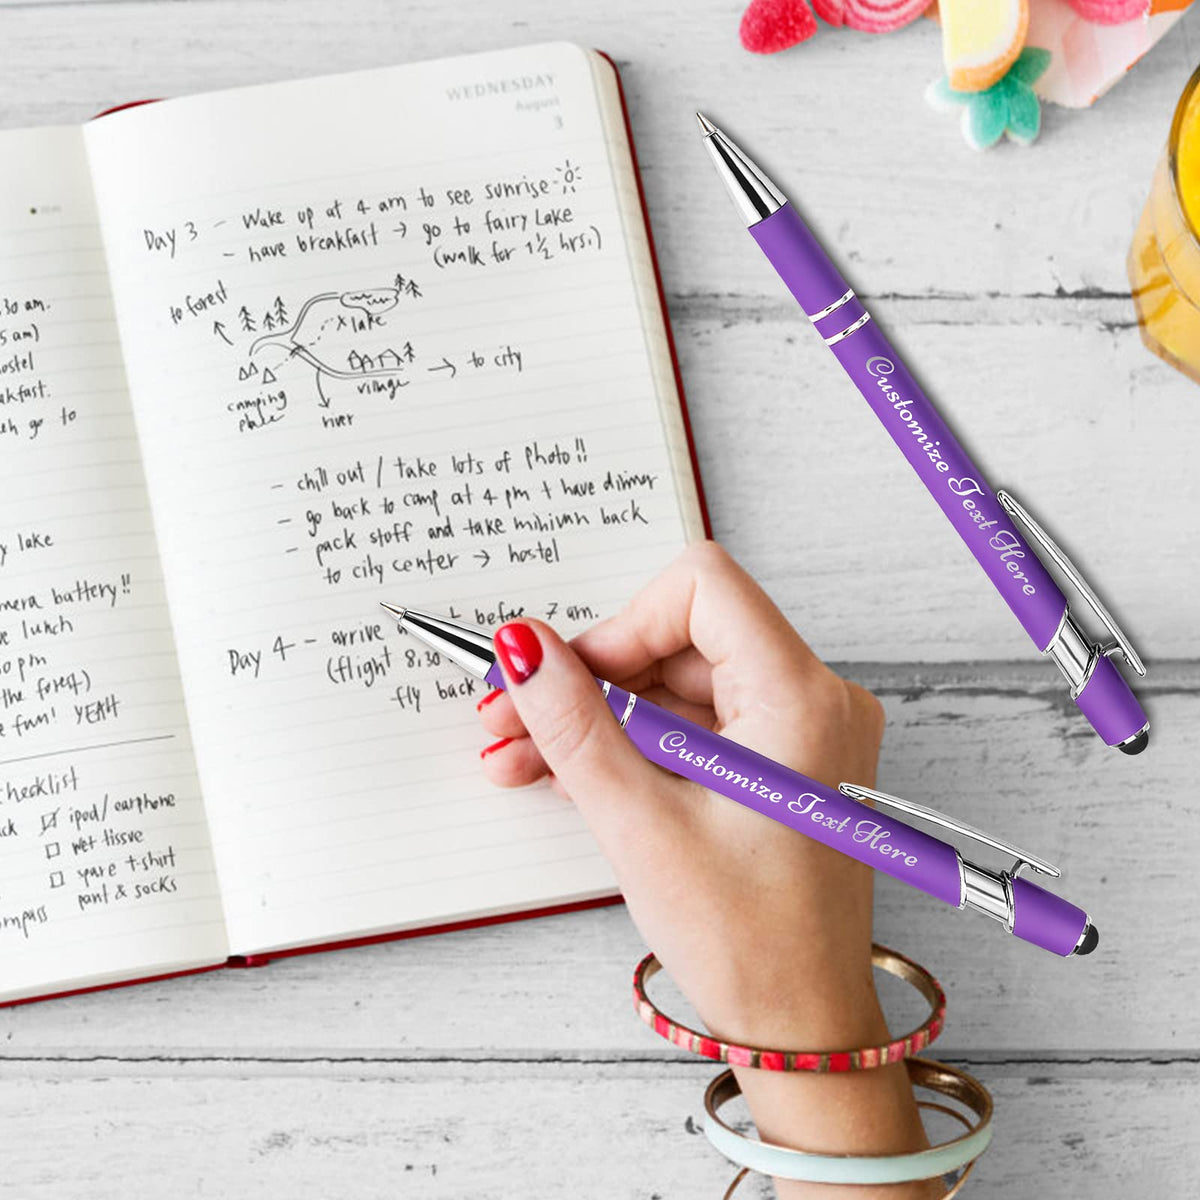 WEDNESDAY
August
3
Day 3 - Wake up at 4 am to see sunrise
- have breakfast → go to fairy Lake
(walk for 1½ hrs.)
to forest
x lake
→ to city
village
camping
river
- chill out / take lots of photo!!
- go back to camp at 4 pm + have dinner
- pack stuff and take minivan back
to city center → hostel
Day 4 - arrive before 7 am.
(flight 8.30
fly back
.30 am.
5 am)
ostel
akfast.
go to
y lake
mera battery!!
e lunch
0 pm
the forest)
e fun! YEAH
checklist
ck ☑ ipod/ earphone
☐ wet tissue
☐ spare t-shirt
pant & socks
ompass
Customize Text Here
Customize Text Here